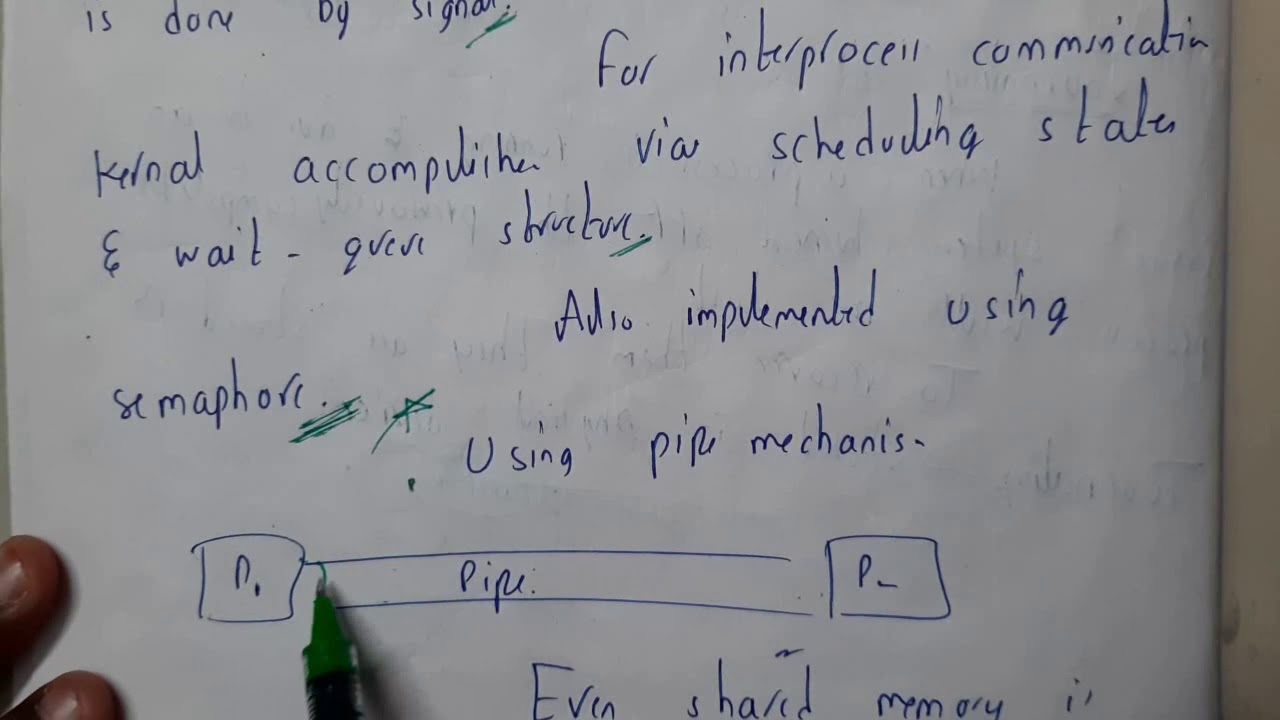 is done by signal.
For interprocess communication
kernal accomplishes via scheduling states
& wait - queue structure.
Also implemented using
semaphore.
Using pipe mechanis-
P1 Pipe. P2
Even shared memory is